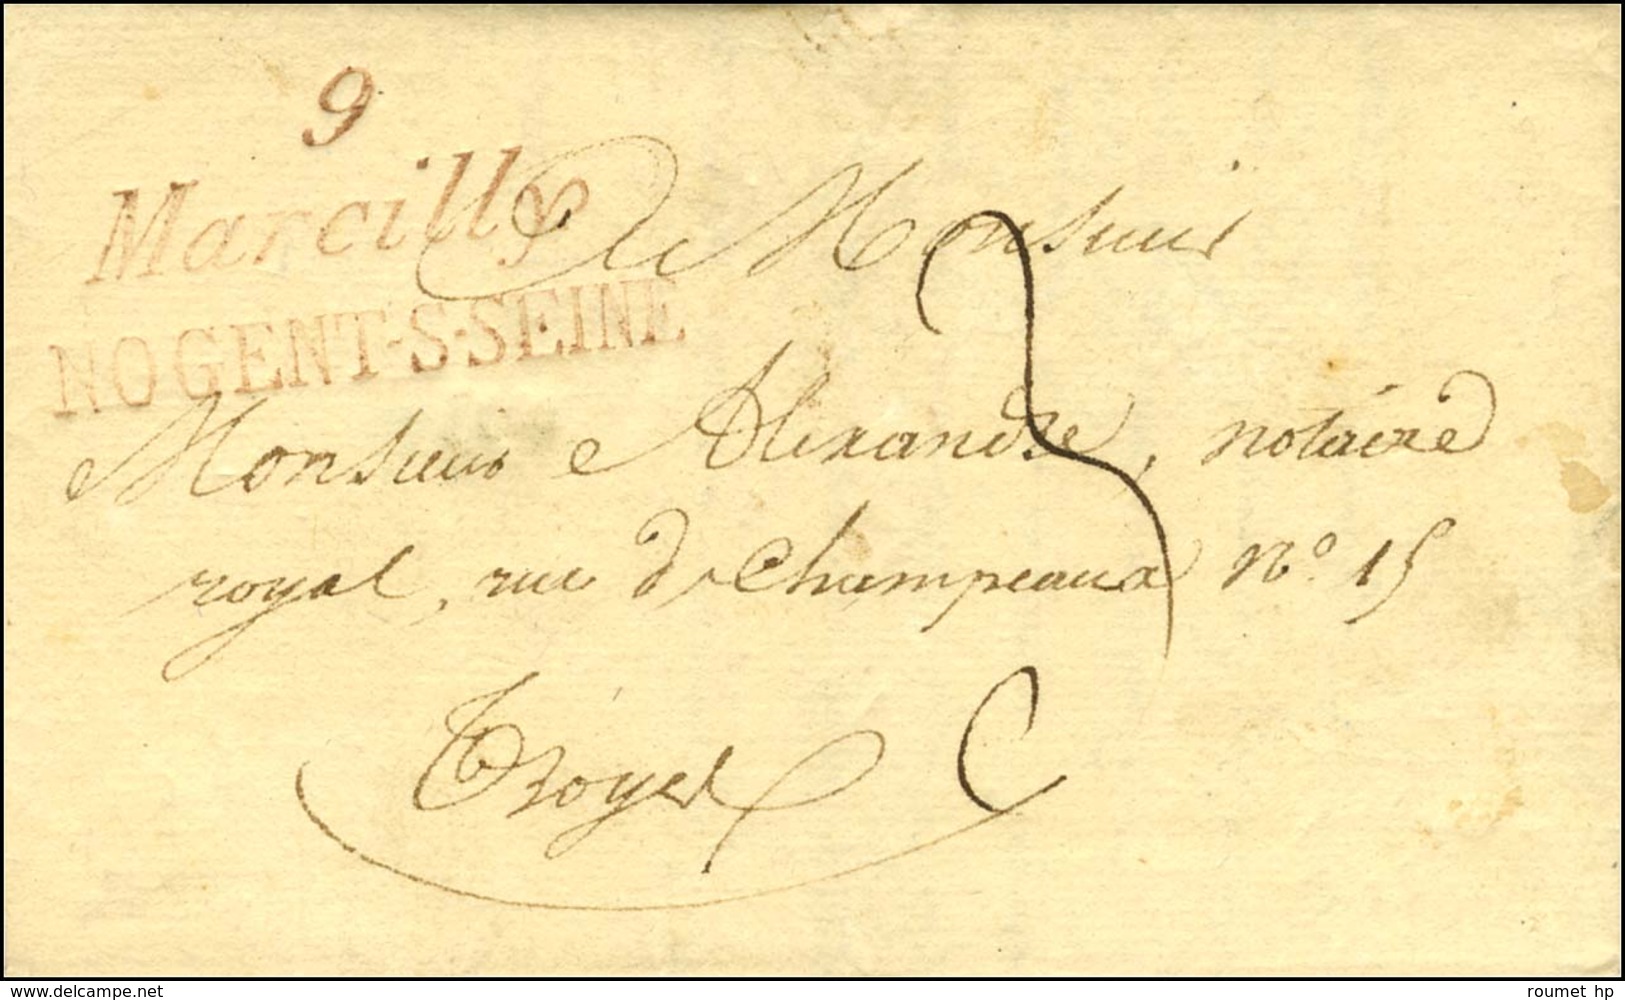 9
Marcilly
NOGENT-S-SEINE
A Monsieur
Monsieur Alexandre, notaire
royal, rue de Champeaux N.º 15
Troyes
www.delcampe.net
roumet hp